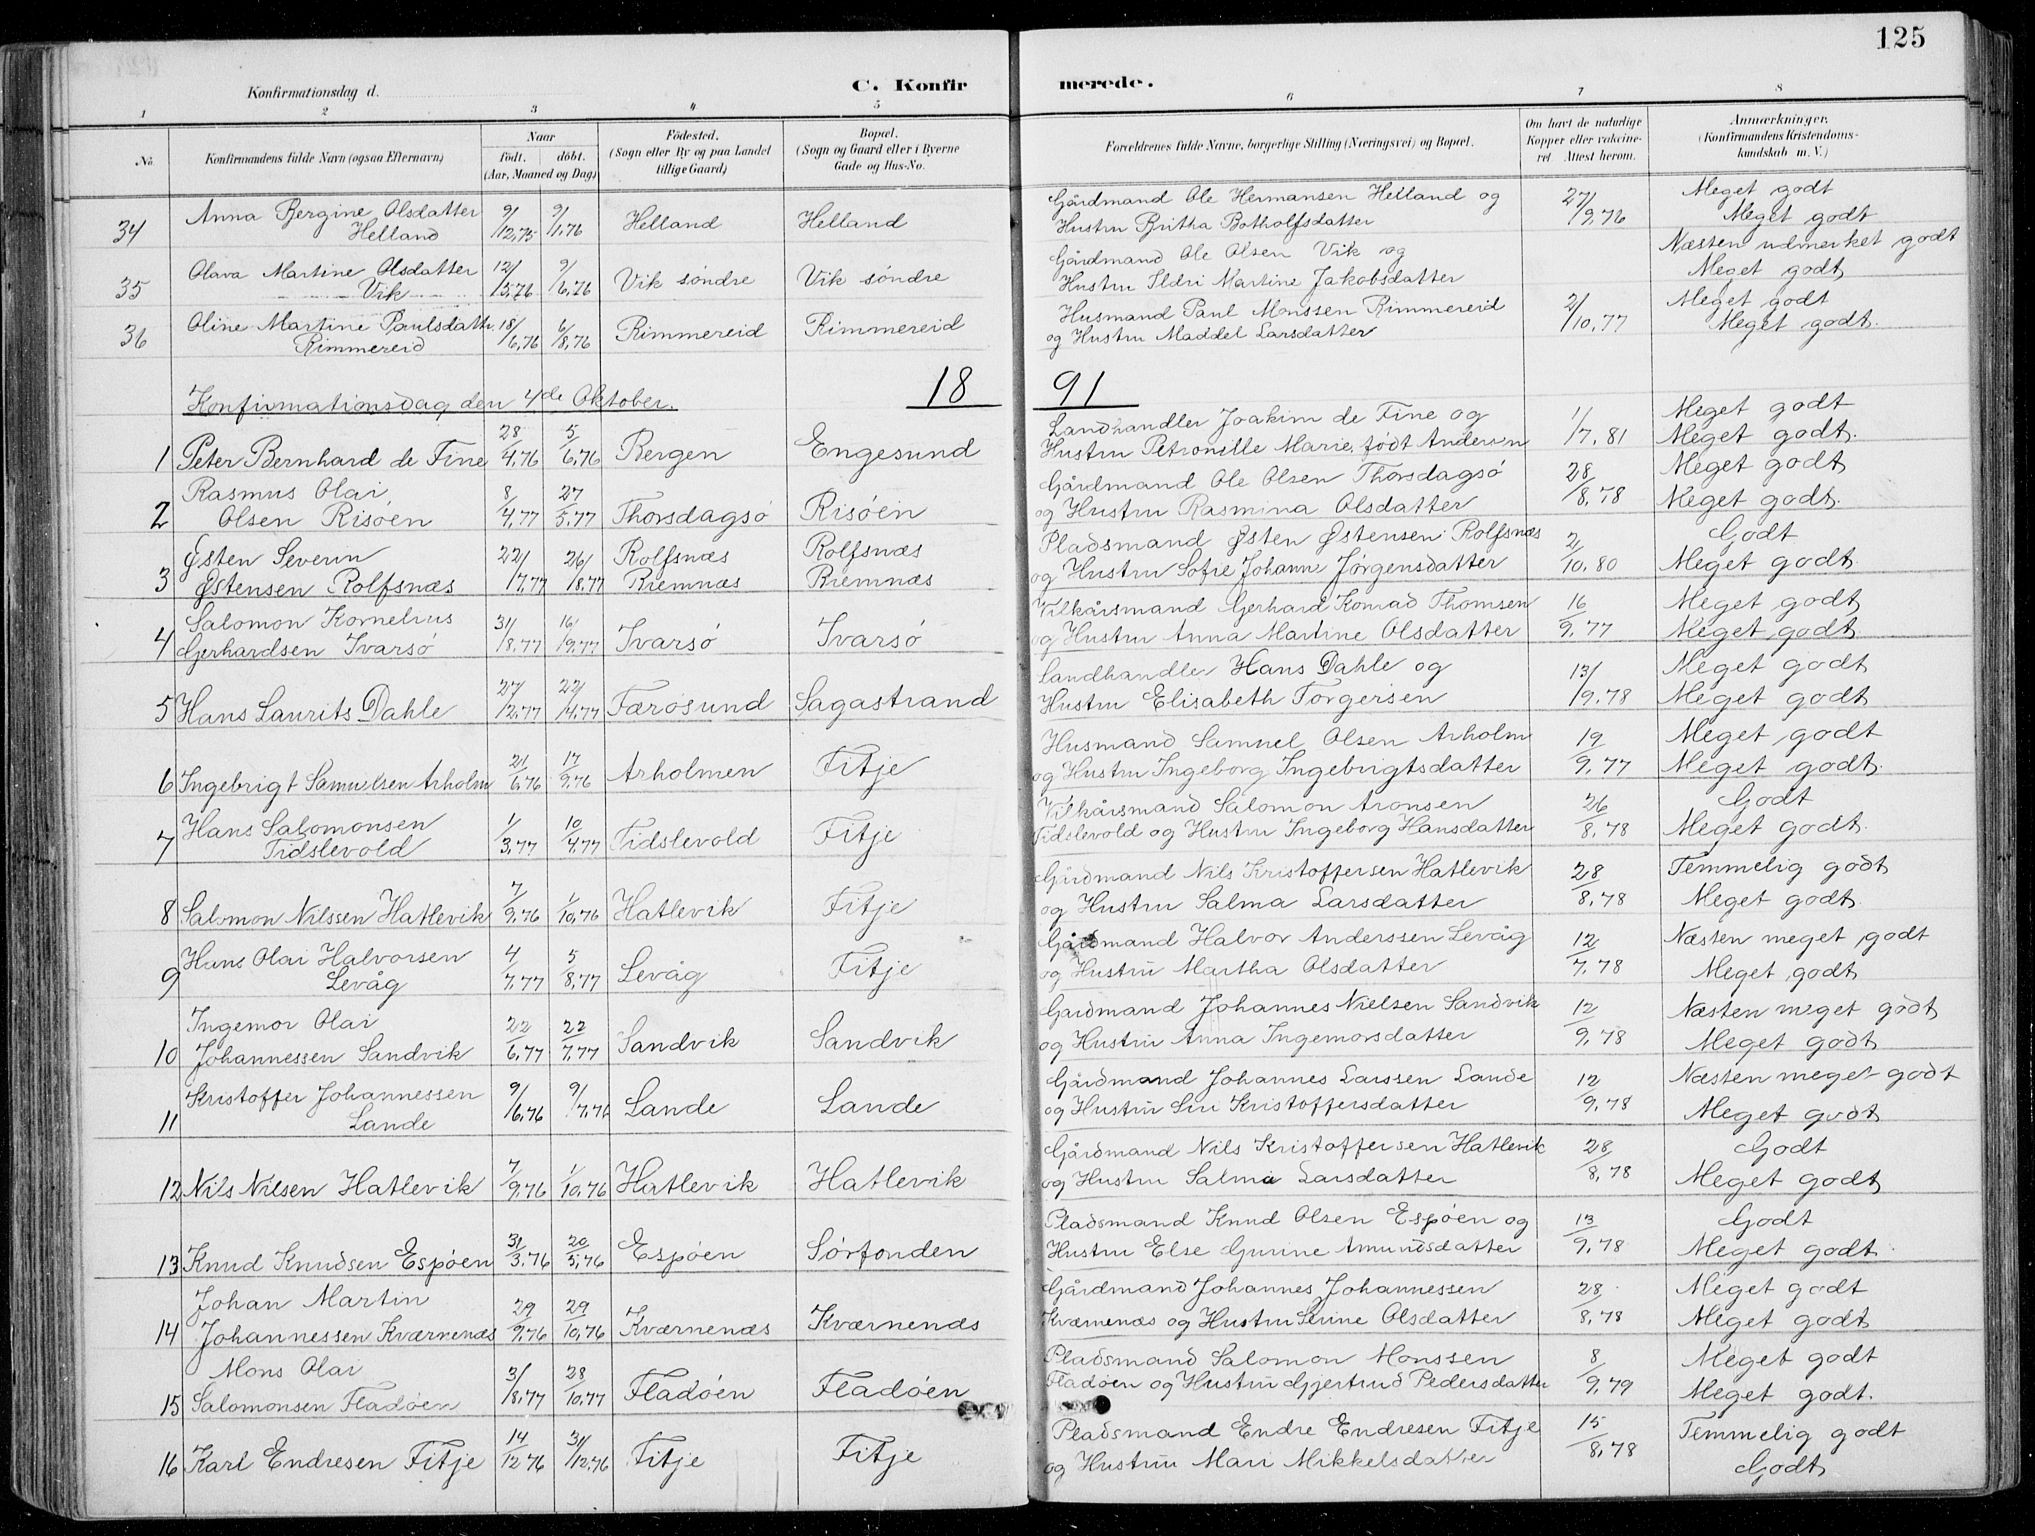 125
Konfirmationsdag d.
C. Konfirmerede.
1 2 3 4 5 6 7 8
No.
Konfirmandens fulde Navn (ogsaa Efternavn)
Naar
födt. döbt.
(Aar, Maaned og Dag)
Födested.
(Sogn eller By og paa Landet
tillige Gaard)
Bopæl.
(Sogn og Gaard eller i Byerne
Gade og Hus-No.
Forældrenes fulde Navne, borgerlige Stilling (Næringsvei) og Bopæl.
Om havt de naturlige
Kopper eller vakcine-
ret Attest herom.
Anmærkninger.
(Konfirmandens Kristendoms-
kundskab m. V.)
34 Anna Bergine Olsdatter Helland 9/12,75 9/1,76 Helland Helland
Gårdmand Ole Hermansen Helland og
Hustru Britha Botholfsdatter
27/9,76 Meget godt
Meget godt
35 Olava Martine Olsdatter Vik 12/5,76 9/6,76 Vik söndre Vik söndre
Gårdmand Ole Olsen Vik og
Hustru Ildri Martine Jakobsdatter
Næsten udmerket godt
Meget godt
36 Oline Martine Paulsdatt. Rimmereid 18/6,76 6/8,76 Rimmereid Rimmereid
Husmand Paul Monssen Rimmereid
og Hustru Maddel Larsdatter
2/10,77 Meget godt
Meget godt.
Konfirmationsdag den 4de Oktober. 18 91
1 Peter Bernhard de Fine 28/4,76 5/6,76 Bergen Engesund
Landhandler Joakim de Fine og
Hustru Petronille Marie, født Andersen
1/7,81 Meget godt
Meget godt.
2 Rasmus Olai
Olsen Risöen 8/4,77 27/5,77 Thorsdagsö Risöen
Gårdmand Ole Olsen Thorsdagsö
og Hustru Rasmina Olsdatter
28/8,78 Meget godt
Meget godt.
3 Østen Severin
Østensen Rolfsnæs 22/7,77 26/8,77 Rolfsnæs Riemnæs Rolfsnæs Riemnæs
Pladsmand Østen Østensen Rolfsnæs
og Hustru Sofie Johann Jörgensdatter
2/10,80 Godt
Meget godt.
4 Salomon Kornelius
Gerhardsen Ivarsö 31/8,77 16/9,77 Ivarsö Ivarsö
Vilkårsmand Gerhard Konrad Thomsen
og Hustru Anna Martine Olsdatter
16/9,77 Meget godt
Meget godt
5 Hans Laurits Dahle 27/2,77 22/4,77 Færösund Sagastrand
Landhandler Hans Dahle og
Hustru Elisabeth Torgersen
13/9,78 Meget godt
Meget godt
6 Ingebrigt Samuelsen Arholm 21/6,76 17/9,76 Arholmen Fitje
Husmand Samuel Olsen Arholm
og Hustru Ingeborg Ingebrigtsdatter
19/9,77 Meget godt
Meget godt.
7 Hans Salomonsen
Tidslevold 1/3,77 10/4,77 Tidslevold Fitje
Vilkårsmand Salomon Aronsen
Tidslevold og Hustru Ingeborg Hansdatter
26/8,78 Godt
Meget godt.
8 Salomon Nilssen Hatlevik 7/9,76 1/10,76 Hatlevik Fitje
Gårdmand Nils Kristoffersen Hatlevik
og Hustru Salma Larsdatter
28/8,78 Temmelig godt
Meget godt
9 Hans Olai Halvorsen
Levåg 4/7,77 5/8,77 Levåg Fitje
Gårdmand Halvor Anderssen Levåg
og Hustru Martha Olsdatter
12/7,78 Næsten meget godt
Meget godt
10 Ingemor Olai
Johannessen Sandvik 22/6,77 22/7,77 Sandvik Sandvik
Gardmand Johannes Nielsen Sandvik
og Hustru Anna Ingemorsdatter
12/9,78 Næsten meget godt
Meget godt
11 Kristoffer Johannessen
Lande 9/6,76 9/7,76 Lande Lande
Gårdmand Johannes Larssen Lande
og Hustru Siri Kristoffersdatter
12/9,78 Næsten meget godt
Meget godt
12 Nils Nilsen Hatlevik 7/9,76 1/10,76 Hatlevik Hatlevik
Gårdmand Nils Kristoffersen Hatlevik
og Hustru Salma Larsdatter
28/8,78 Godt
Meget godt
13 Knud Knudsen Espöen 31/3,76 20/5,76 Espöen Sörfonden
Pladsmand Knud Olsen Espöen og
Hustru Else Gurine Amundsdatter
13/9,78 Godt
Meget godt.
14 Johan Martin
Johannessen Kværnenæs 29/9,76 29/10,76 Kværnenæs Kværnenæs
Gårdmand Johannes Johannessen
Kværnenæs og Hustru Serine Olsdatter
28/8,78 Meget godt
Meget godt
15 Mons Olai
Salomonsen Fladöen 31/8,77 28/10,77 Fladöen Fladöen
Pladsmand Salomon Monssen
Fladöen og Hustru Gjertrud Pedersdatter
8/9,79 Meget godt
Meget godt.
16 Karl Endresen Fitje 14/12,76 31/12,76 Fitje Fitje
Pladsmand Endre Endresen Fitje
og Hustru Mari Mikkelsdatter
15/8,78 Temmelig godt
Godt